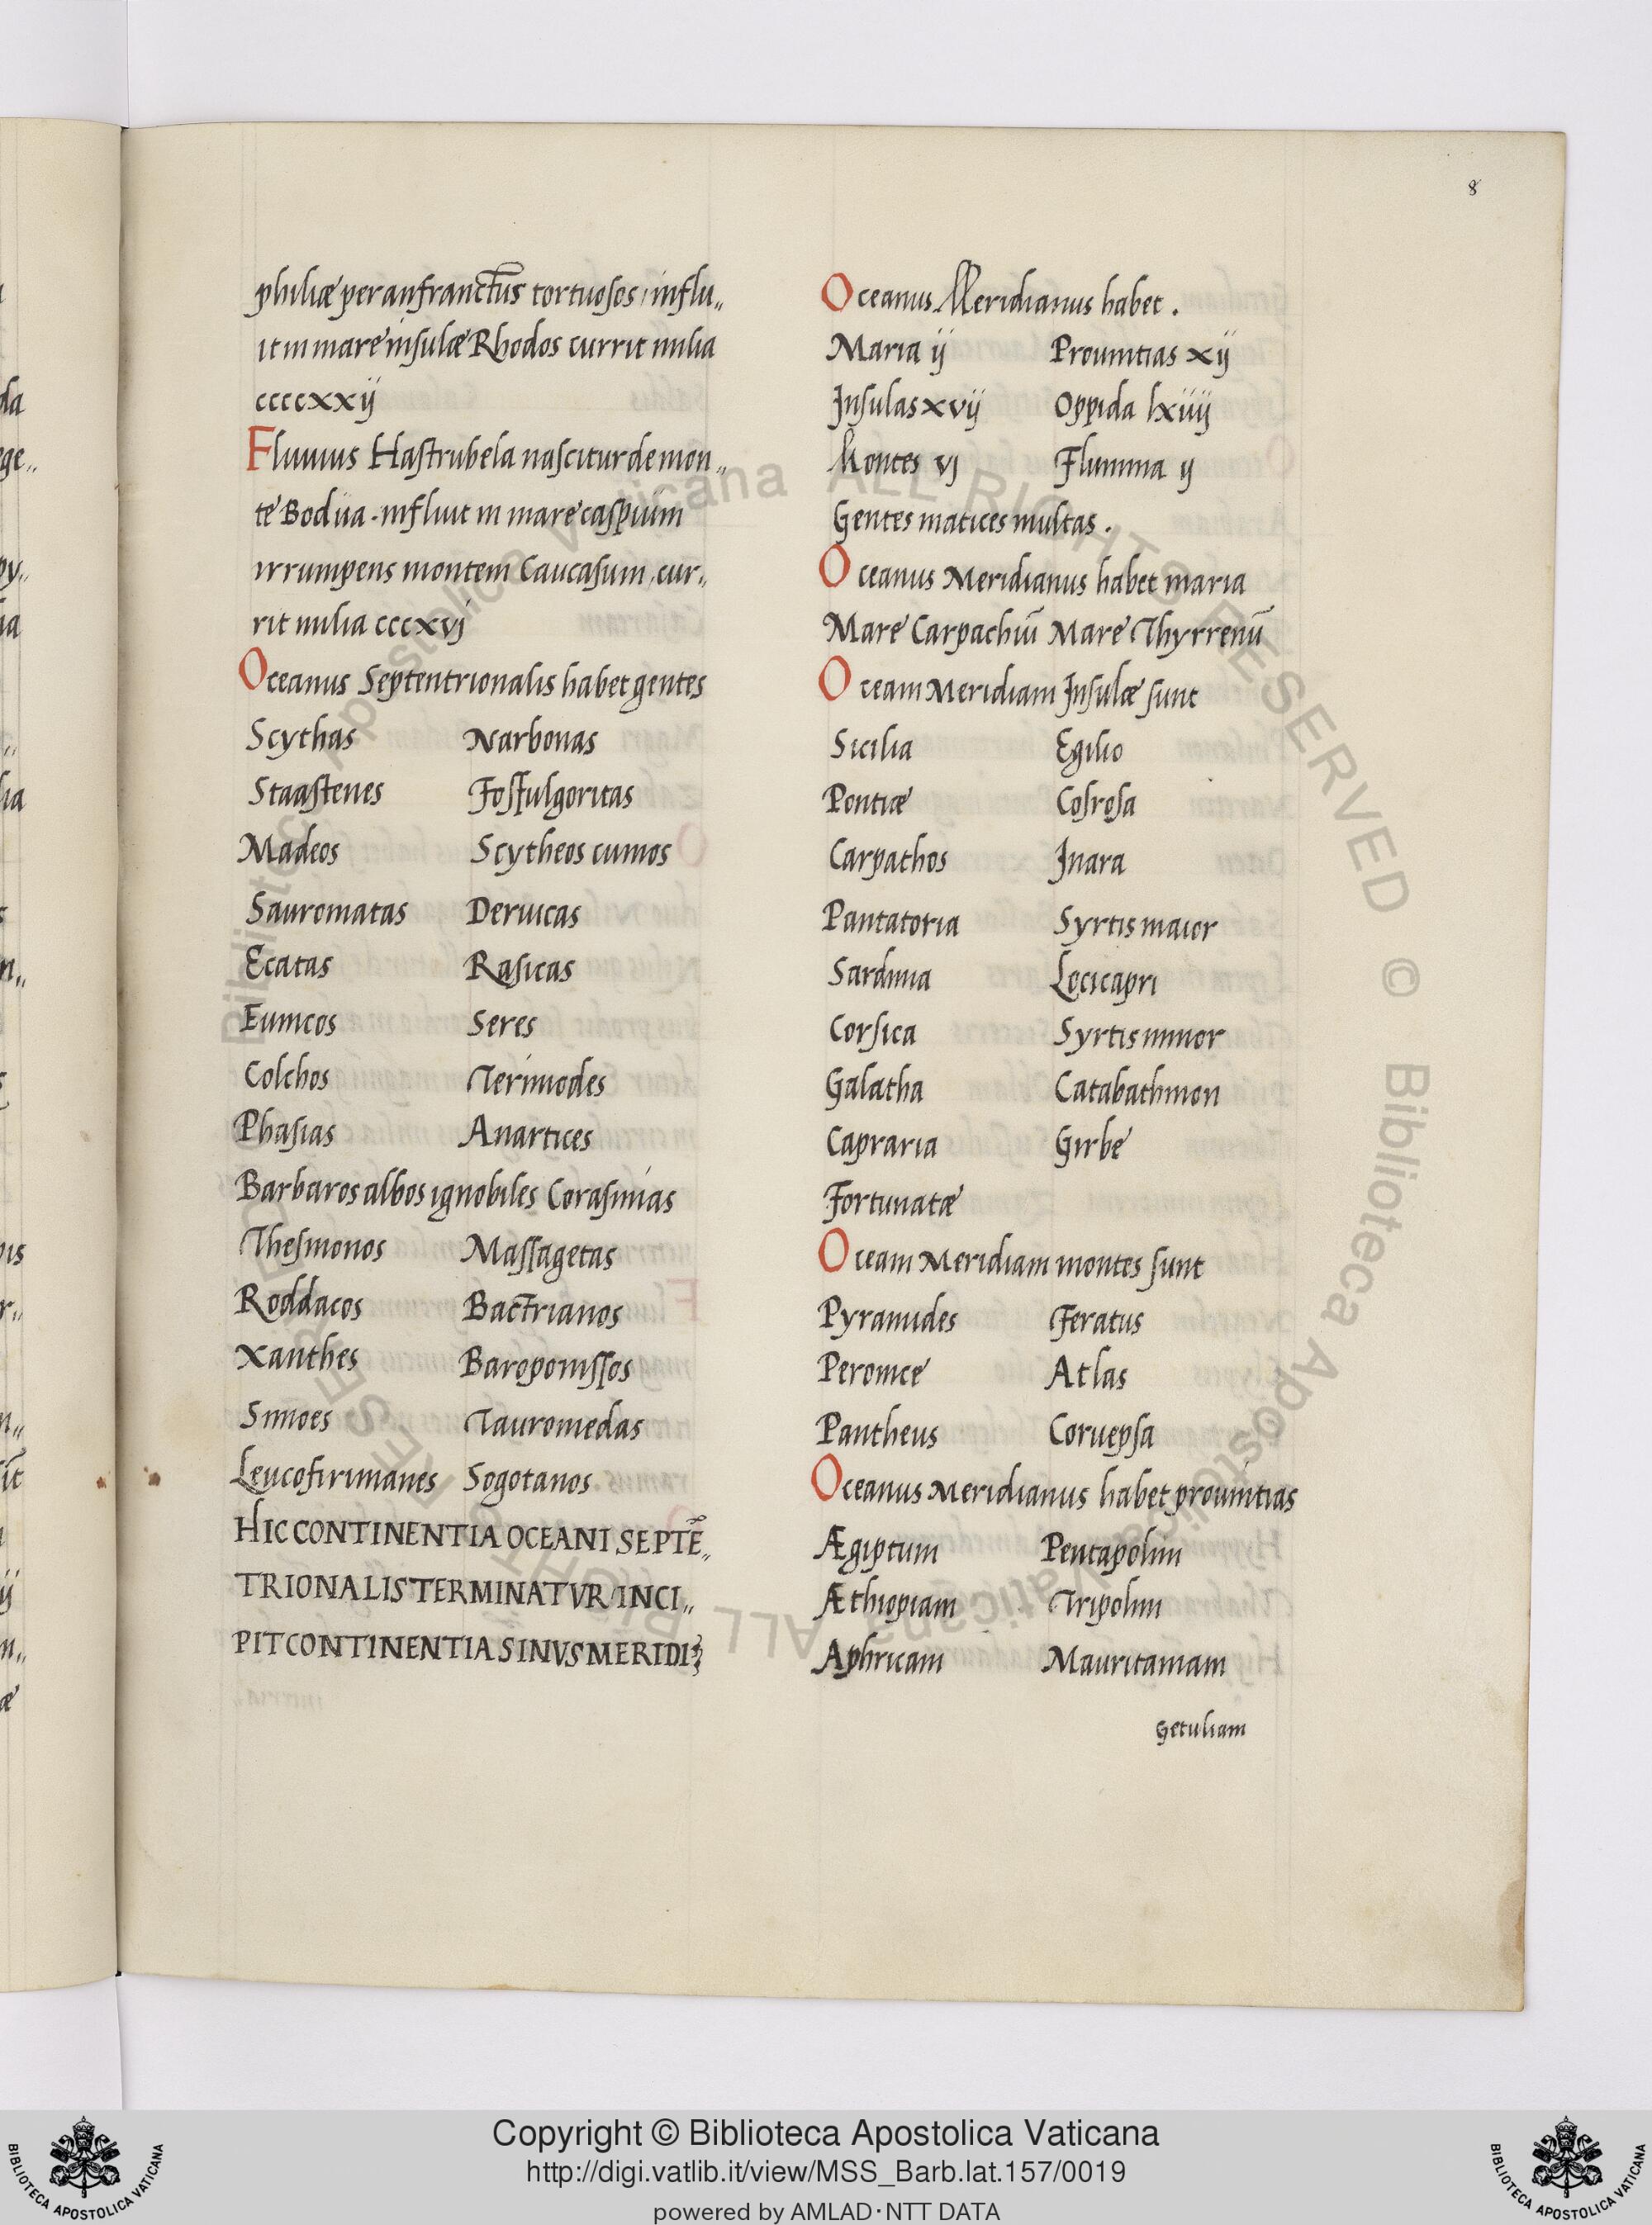 8
philiæ per anfranctus tortuosos, influ„
it in mare insulæ Rhodos currit milia
ccccxxij
Fluuius Hastrubela nascitur de mon„
te Bodua. influit in mare caspium
irrumpens montem Caucasum, cur„
rit milia cccxvj
Oceanus Septentrionalis habet gentes
Scythas Narbonas
Staastenes Fosfulgoritas
Madeos Scytheos cumos
Sauromatas Deruicas
Ecatas Rasicas
Eunicos Seres
Colchos Terimodes
Phasias Anartices
Barbaros albos ignobiles Corasinias
Thesmonos Massagetas
Roddacos Bactrianos
Xanthes Baroponissos
Simoes Tauromedas
Leucofirimanes Sogotanos
HIC CONTINENTIA OCEANI SEPTĒ„
TRIONALIS TERMINATVR / INCI„
PIT CONTINENTIA SINVS MERIDI
Oceanus Meridianus habet.
Maria ij Prouintias xij
Insulas xvij Oppida lxiiij
Montes vj Flumina ij
Gentes matices multas.
Oceanus Meridianus habet maria
Mare Carpachiū Mare Thyrrenū
Oceani Meridiani Insulæ sunt
Sicilia Egilio
Pontiæ Cosrosa
Carpathos Inara
Pantatoria Syrtis maior
Sardinia Locicapri
Corsica Syrtis minor
Galatha Catabathmon
Capraria Girbe
Fortunatæ
Oceani Meridiani montes sunt
Pyramides Feratus
Peronice Atlas
Pantheus Coruepsa
Oceanus Meridianus habet prouintias
Ægiptum Pentapolim
Æthiopiam Tripolim
Aphricam Mauritaniam
Getuliam
Biblioteca Apostolica Vaticana ALL RIGHTS RESERVED ©
Copyright © Biblioteca Apostolica Vaticana
http://digi.vatlib.it/view/MSS_Barb.lat.157/0019
powered by AMLAD·NTT DATA
BIBLIOTECA APOSTOLICA VATICANA
BIBLIOTECA APOSTOLICA VATICANA